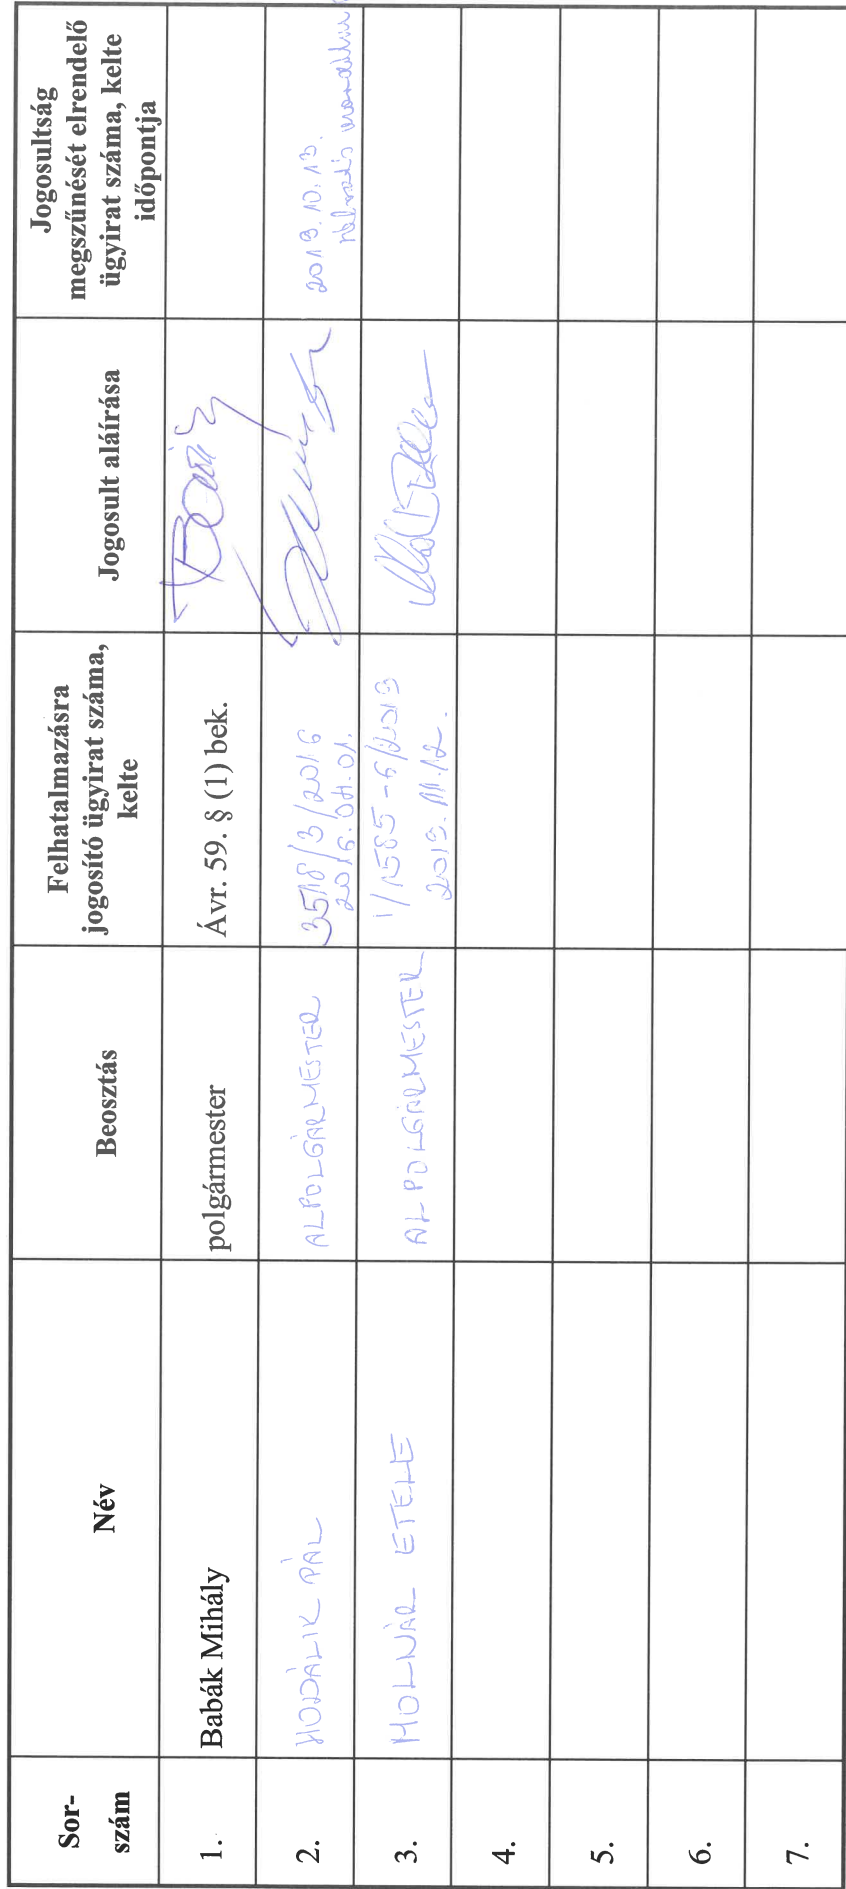 Sor-
szám
Név
Beosztás
Felhatalmazásra
jogosító ügyirat száma,
kelte
Jogosult aláírása
Jogosultság
megszűnését elrendelő
ügyirat száma, kelte
időpontja
1.
Babák Mihály
polgármester
Ávr. 59. § (1) bek.
2.
HODÁLIK PÁL
ALPOLGÁRMESTER
3518/3/2016
2016.04.01.
2019.10.13.
3.
MOLNÁR ETELE
ALPOLGÁRMESTER
1/1585-6/2019
2019.11.12.
4.
5.
6.
7.